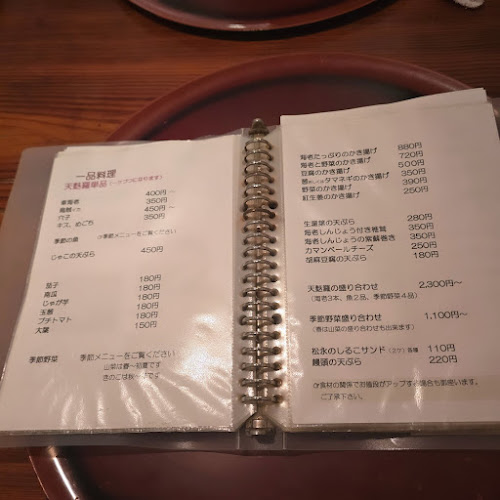 一品料理
天麩羅単品
400円~
車海老 350円
450円~
穴子 350円
キス、めごち
季節の魚 ☞季節メニューをご覧ください
じゃこの天ぷら 450円
茄子 180円
南瓜 180円
じゃが芋 180円
玉葱 180円
プチトマト 180円
大葉 150円
季節野菜 季節メニューをご覧ください
山菜は春~初夏です
きのこは秋~冬です
海老たっぷりのかき揚げ 880円
海老と野菜のかき揚げ 720円
豆腐のかき揚げ 500円
タマネギのかき揚げ 350円
野菜のかき揚げ 390円
紅生姜のかき揚げ 250円
生湯葉の天ぷら 280円
海老しんじょう付き椎茸 350円
海老しんじょうの紫蘇巻き 350円
カマンベールチーズ 250円
胡麻豆腐の天ぷら 180円
天麩羅の盛り合わせ 2,300円~
(海老3本、魚2品、季節野菜4品)
季節野菜盛り合わせ 1,100円~
(春は山菜の盛り合わせも出来ます)
松永のしるこサンド 110円
饅頭の天ぷら 220円
☞食材の関係でお値段がアップする場合も御座います。
ご了承下さい。